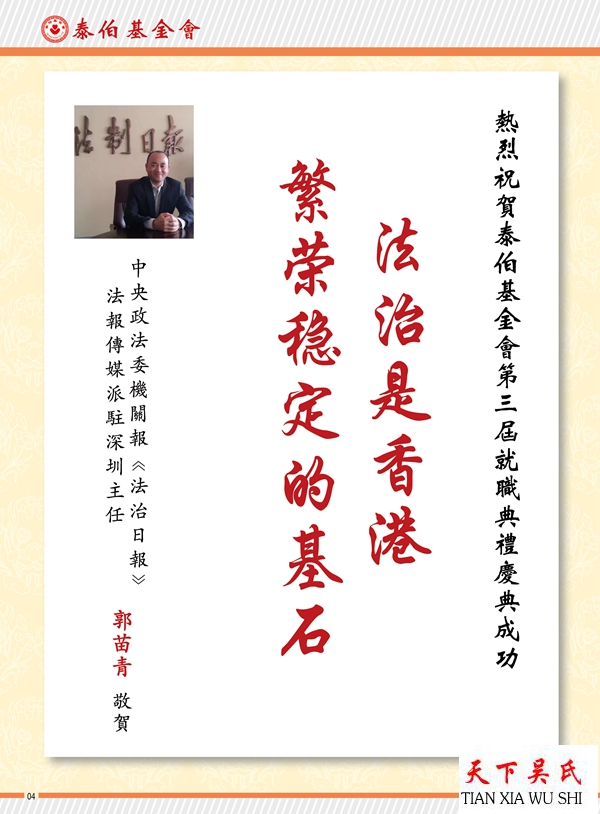 泰伯基金會
熱烈祝賀泰伯基金會第三屆就職典禮慶典成功
法治是香港
繁荣稳定的基石
法制日报
中央政法委機關報《法治日報》
法報傳媒派駐深圳主任
郭苗青 敬賀
04
天下吴氏
TIAN XIA WU SHI